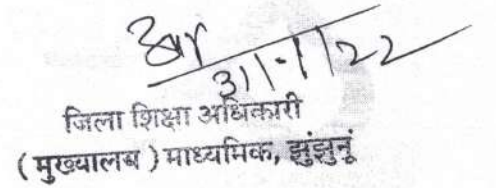 31/1/22
जिला शिक्षा अधिकारी
( मुख्यालब ) माध्यमिक, झुंझुनूं